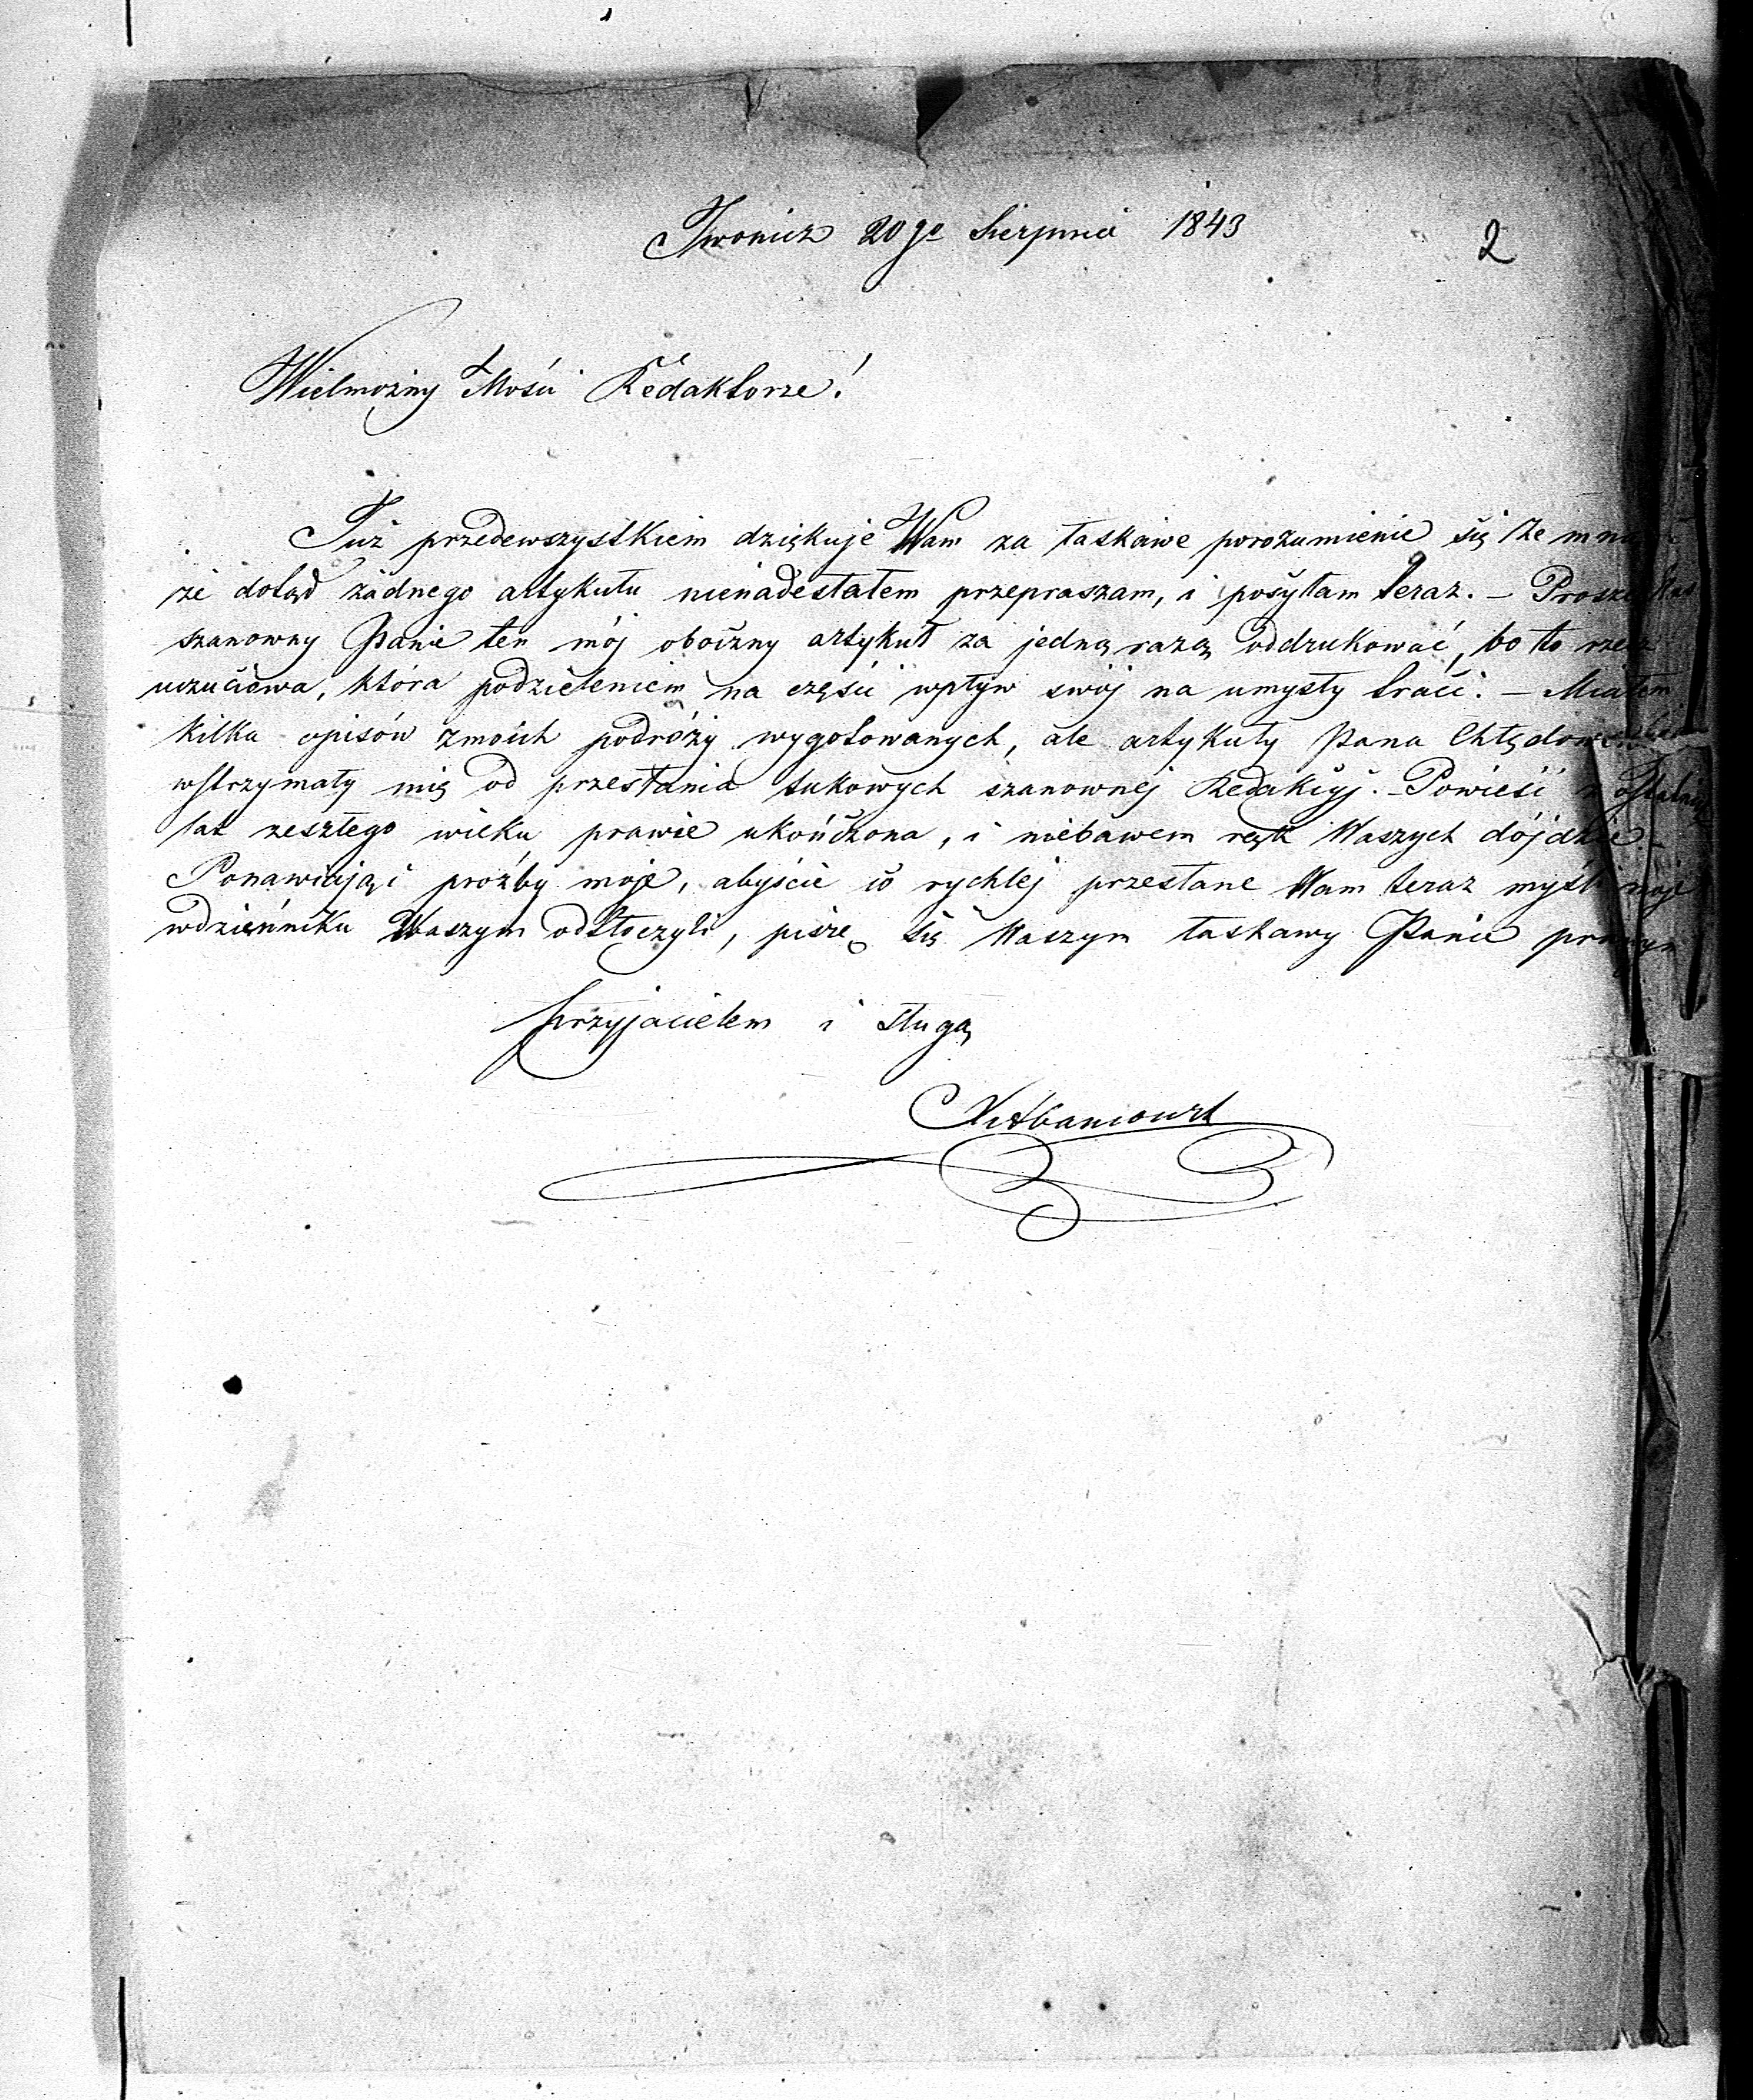 Iwonicz 20go Sierpnia 1843
2
Wielmożny Mości Redaktorze!
Już przedewszystkiem dziękuje Wam za łaskawe porozumienie się ze mną
że dotąd żadnego artykułu nienadesłałem przepraszam, i posyłam teraz. – Proszę
szanowny Panie ten mój oboczny artykuł za jedną razą oddrukować, bo to rzecz
uczuciowa, która podzieleniem na części wpływ swój na umysły traci. – Miałem
kilka opisów zmoich podróży wygotowanych, ale artykuły Pana Chłędowskiego
wstrzymały mię od przesłania takowych szanownej Redakcyj. – Powieść z ostatnich
lat zeszłego wieku prawie ukończona, i niebawem rąk Waszych dójdzie. –
Ponawiając prożby moje, abyście co rychlej przesłane Wam teraz myśli moje
wdzienniku Waszym odtłoczyli, piszę się Waszym łaskawy Panie
przyjacielem i sługą
Abancourt